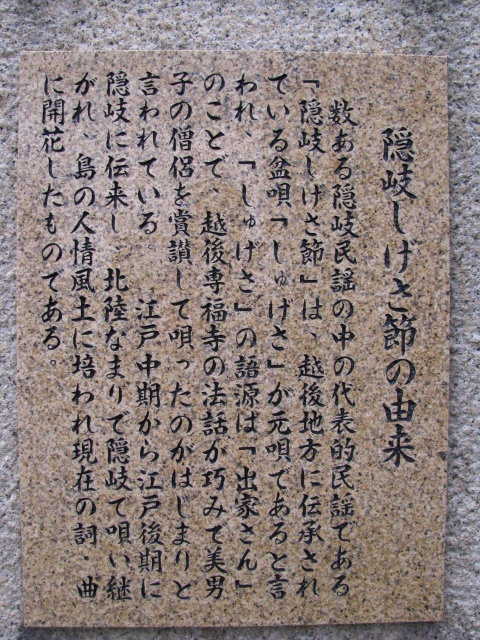 隠岐しげさ節の由来
数ある隠岐民謡の中の代表的民謡である
「隠岐しげさ節」は、越後地方に伝承され
ている盆唄「しゅげさ」が元唄であると言
われ、「しゅげさ」の語源は「出家さん」
のことで、越後専福寺の法話が巧みで美男
子の僧侶を賞讃して唄ったのがはじまりと
言われている。　江戸中期から江戸後期に
隠岐に伝来し、北陸なまりで隠岐て唄い継
がれ、島の人情風土に培われ現在の詞・曲
に開花したものである。